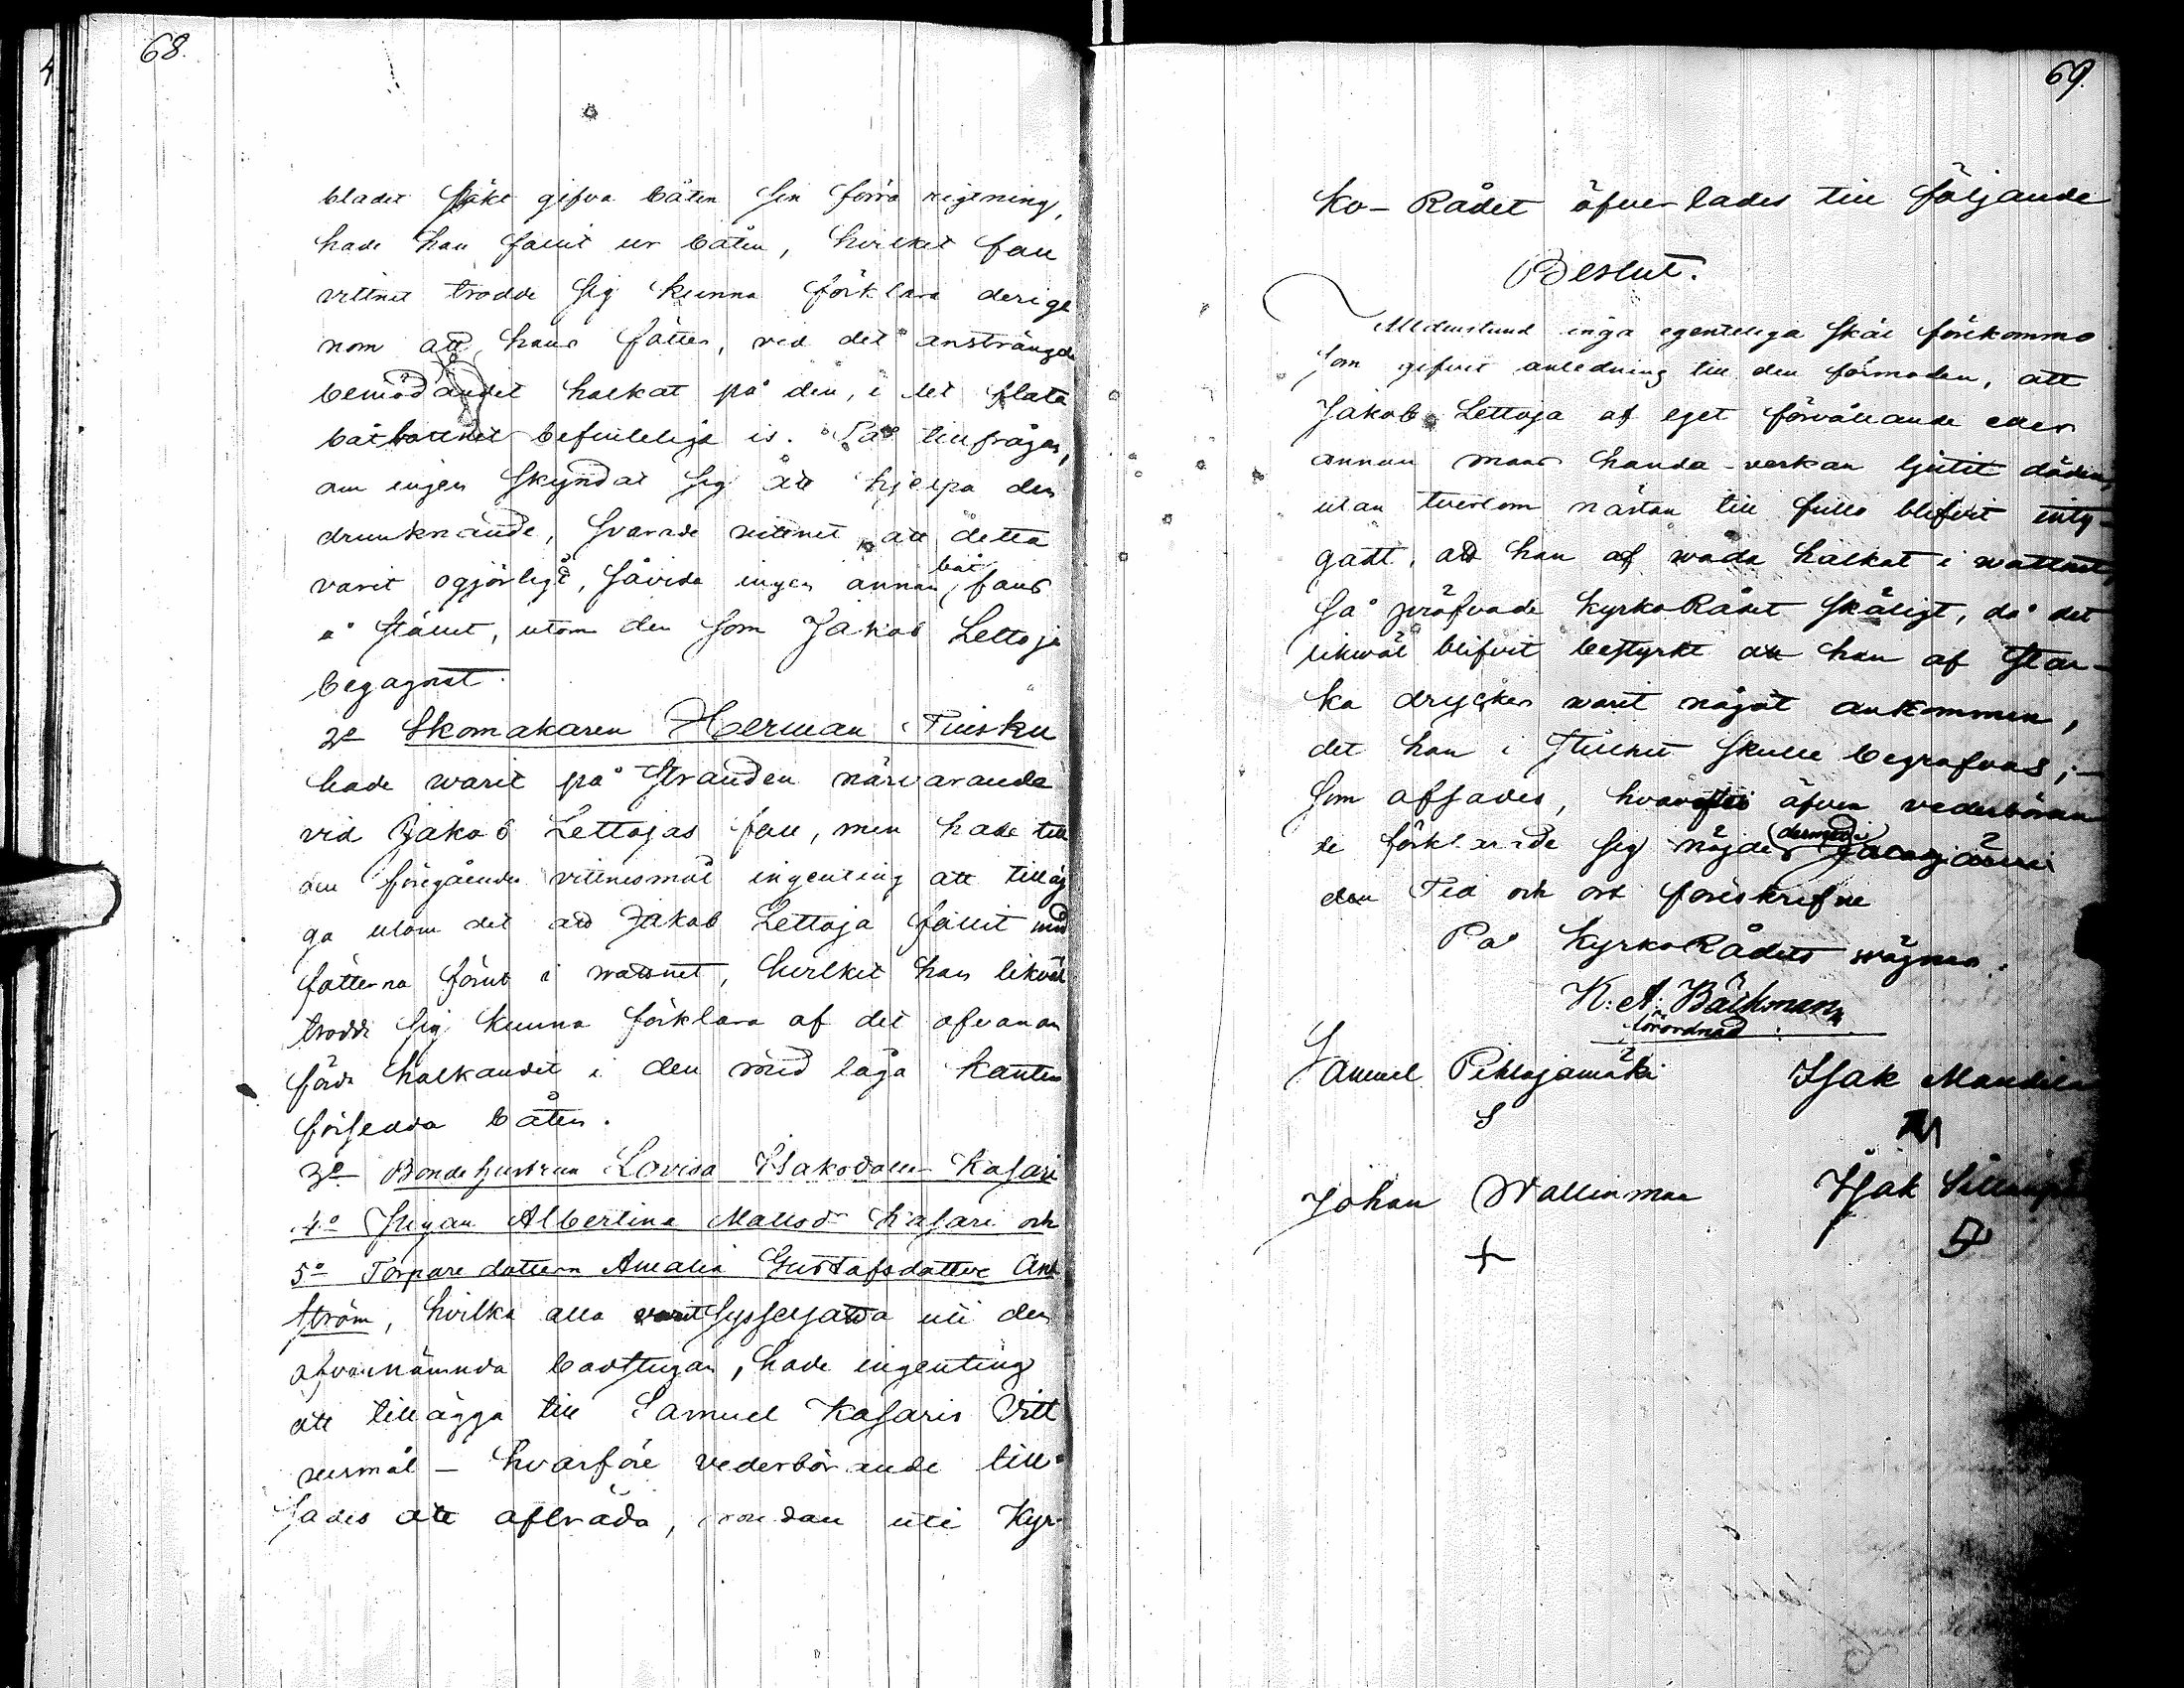 68.
bladet sökt gifva båten sin förra rigtning,
hade han fallit ur båten, hvilket fall
vittnet trodde sig kunna förklara derige
nom att hans fötter, vid det ansträngde
bemödandet halkat på den, i det flata
båtbottnet befintelige is. På tillfrågan,
om ingen skyndat sig att hjelpa den
drunknande, svarade vittnet att detta
varit ogjörligt, såvida ingen annan båt fans
å stället, utom den som Jakob Lettoja
begagnat.
2o Skomakaren Herman Finsku
hade warit på stranden närvarande
vid Jakob Lettojas fall, men hade till
om föregående vittnesmål ingenting att tilläg
ga utom det att Jakob Lettoja fallit med
fötterna förut i wattnet, hvilket han likväl
trodde sig kunna förklara af det ofvanan
förda halkandet i den med låga kanter
försedda båten.
3o Bondehustrun Lovisa Isaksdotter Kasari
4o Pigan Albertina Mattsdr Kasari och
5o Torparedottern Amalia Gustafsdotter Ant
ström, hvilka alla varit sysselsatta uti den
ofvannämnda badstugan, hade ingenting
att tillägga till Samuel Kasaris Vitt
nesmål – hvarföre vederbörande till
sades att afträda, medan uti Kyr-
69.
ko-Rådet öfverlades till följande
Beslut.
Alldenstund inga egentliga skäl förekommo
som gifvit anledning till den förmodan, att
Jakob Lettoja af eget förvållande eller
annan mans handa-verkan ljutit döden,
utan tvertom nästan till fullo blifvit inty-
gadt, att han af våda halkat i wattnet,
så pröfvade KyrkoRådet skäligt, då det
likwäl blifvit bestyrkt att han af star-
ka drycker warit något ankommen,
det han i stillhet skulle begrafvas; –
Som afsades, hvaröfver äfven vederböran
de förklarade sig nöjde (dermed)
den Tid och ort föreskrifne
På KyrkoRådets wägnar.
K: A: Bäckman
förordnad:
Samuel Pihlajamäki Isak Mandila
S
Johan Wallinmaa Isak
+